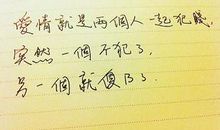 愛情就是兩個人一起犯賤，
突然一個不犯了，
另一個就傻了。